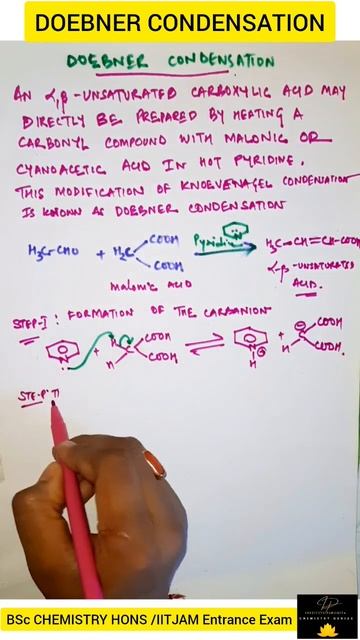 DOEBNER CONDENSATION
DOEBNER CONDENSATION
AN α,β-UNSATURATED CARBOXYLIC ACID MAY
DIRECTLY BE PREPARED BY HEATING A
CARBONYL COMPOUND WITH MALONIC OR
CYANOACETIC ACID IN HOT PYRIDINE.
THIS MODIFICATION OF KNOEVENAGEL CONDENSATION
IS KNOWN AS DOEBNER CONDENSATION
H3C-CHO + H2C COOH COOH Pyridine N H3C-CH=CH-COOH
malonic ACID
α-β-UNSATURATED
ACID.
STEP-I: FORMATION OF THE CARBANION
N + H H COOH COOH ⇌ N H ⊕ + ⊖ H COOH COOH
STEP II
BSc CHEMISTRY HONS /IITJAM Entrance Exam
CHEMISTRY SERIES